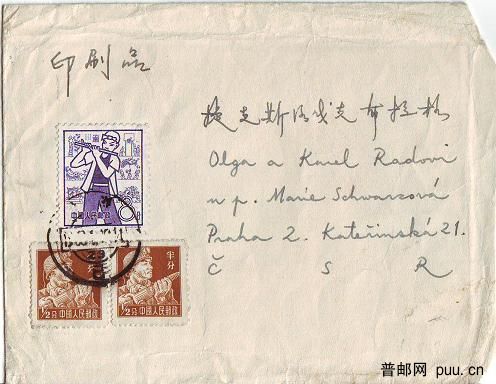 印刷品
捷克斯洛伐克布拉格
Olga a Karel Radovi
u p. Marie Schwarzová
Praha 2. Kateřinská 21.
Č S R
中国人民邮政
8
半分
1/2分 中国人民邮政
1/2分 中国人民邮政
普邮网 puu.cn